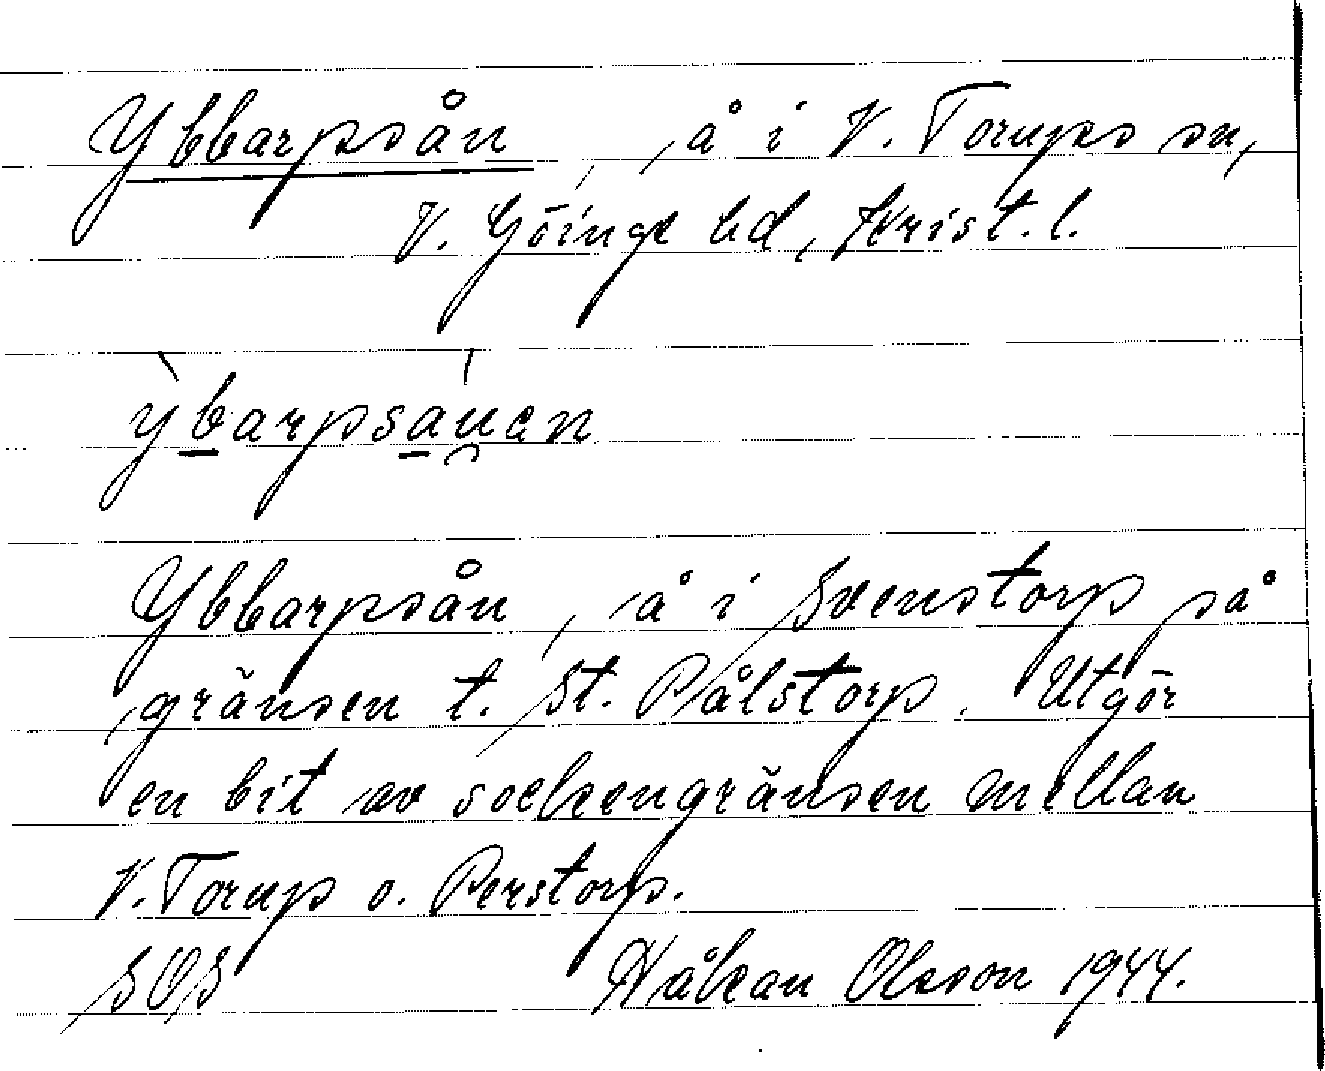 Ybbarpsån, å i V. Torups sn,
V. Göinge hd, Krist. l.
ỳbarpsáu̯en
Ybbarpsån, å i Svenstorp på
gränsen t. St. Pålstorp. Utgör
en bit av sockengränsen mellan
V. Torup o. Perstorp.
SOS Håkan Olsson 1944.